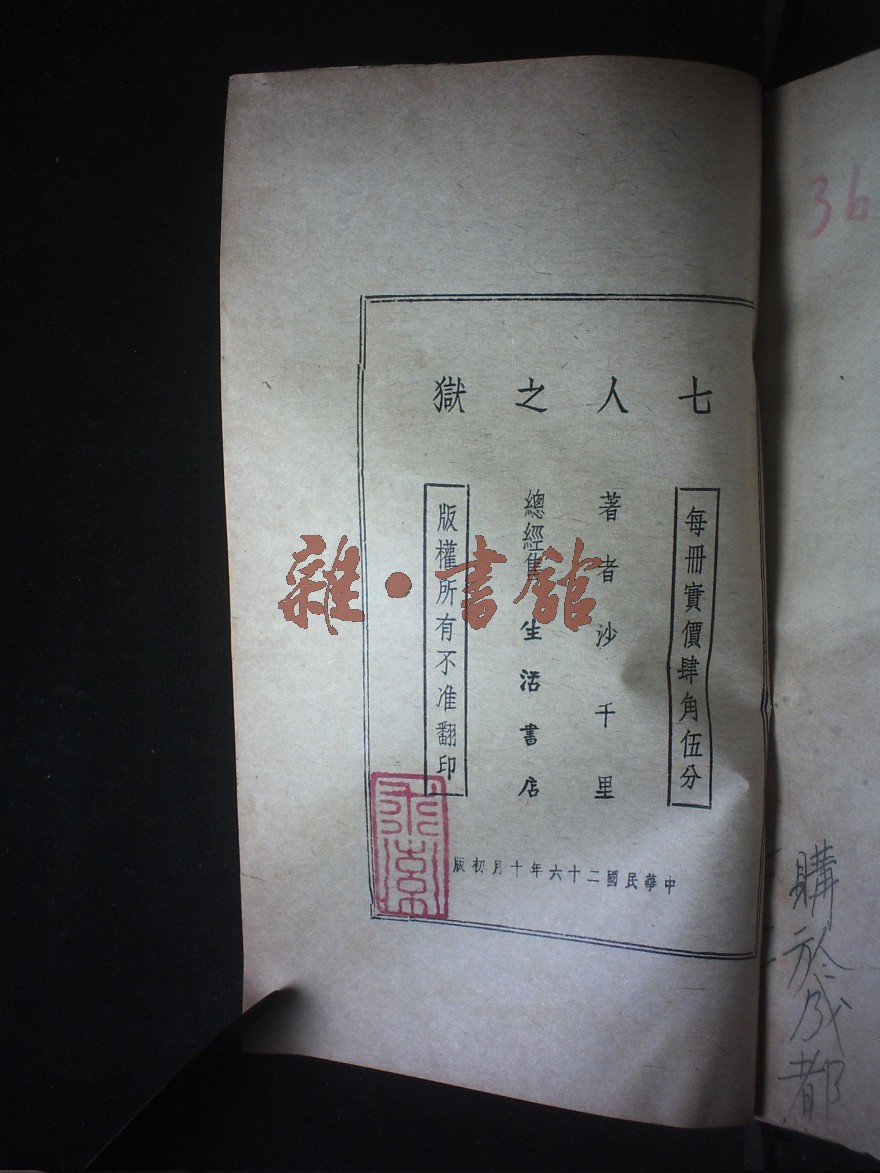 七人之獄
每冊實價肆角伍分
著者沙千里
總經售生活書店
版權所有不准翻印
中華民國二十六年十月初版
雜·書館
36
購於成都